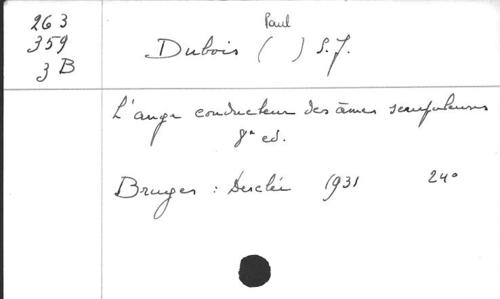 263
359
3 B
Paul
Dubois ( ) S.J.
L'ange conducteur des âmes scrupuleuses
8e ed.
Bruges : Desclée 1931 24°